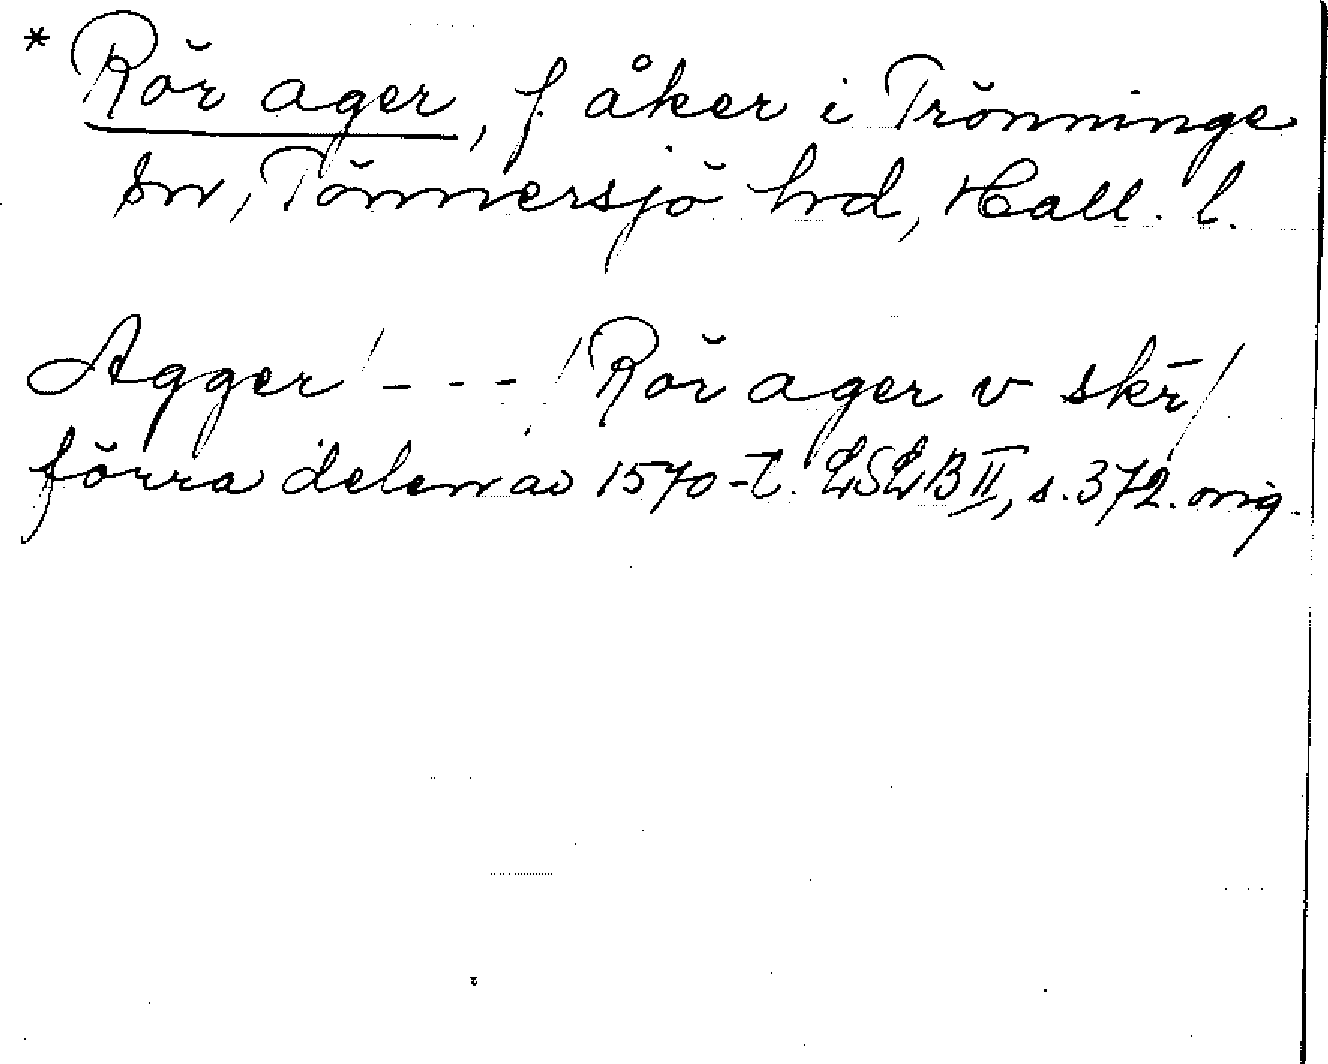 * Rör ager, f. åker i Trönninge
sn, Tönnersjö hd, Hall. l.
Agger / - - - / Rör ager v skr /
förra delen av 1570-t. LSLB II, s. 372. orig.